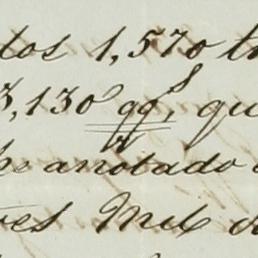 tos 1,570 t
3,130 qq.s, qu
he anotado
tres Mil d